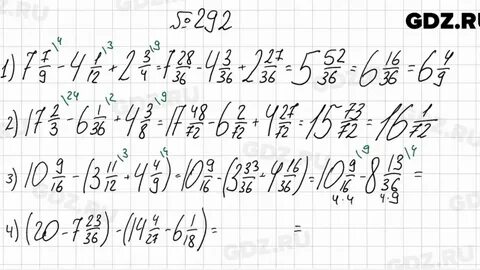 GDZ.RU
№ 292
1) 7 7/9 \4 - 4 1/12 \3 + 2 3/4 \9 = 7 28/36 - 4 3/36 + 2 27/36 = 5 52/36 = 6 16/36 = 6 4/9
2) 17 2/3 \24 - 6 1/36 \12 + 4 3/8 \9 = 17 48/72 - 6 2/72 + 4 27/72 = 15 73/72 = 16 1/72
3) 10 9/16 - (3 11/12 \3 + 4 4/9 \4) = 10 9/16 - (3 33/36 + 4 16/36) = 10 9/16 \9 - 8 13/36 \4 =
4·4 4·9
4) (20 - 7 23/36) - (14 4/27 - 6 1/18) = =